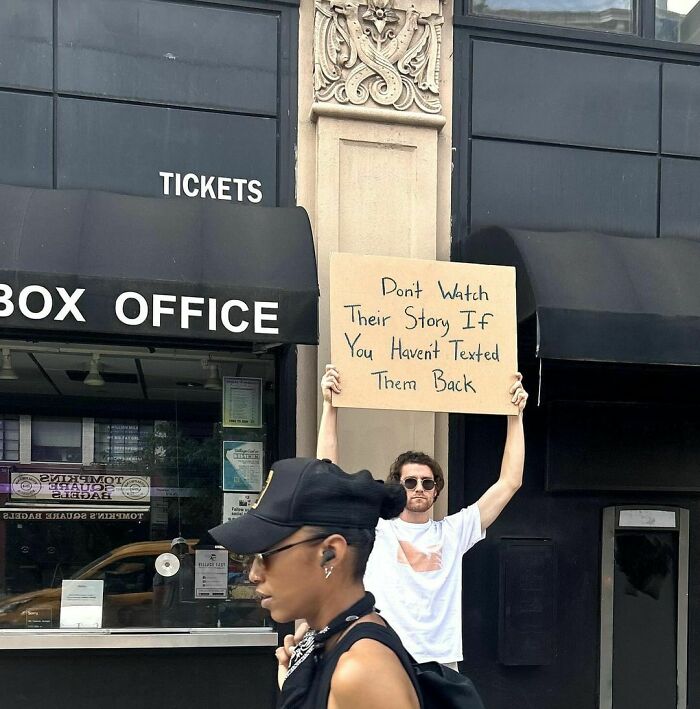 TICKETS
BOX OFFICE
Don't Watch
Their Story If
You Haven't Texted
Them Back
TOMPKINS
SQUARE
BAGELS
TOMPKINS SQUARE BAGELS